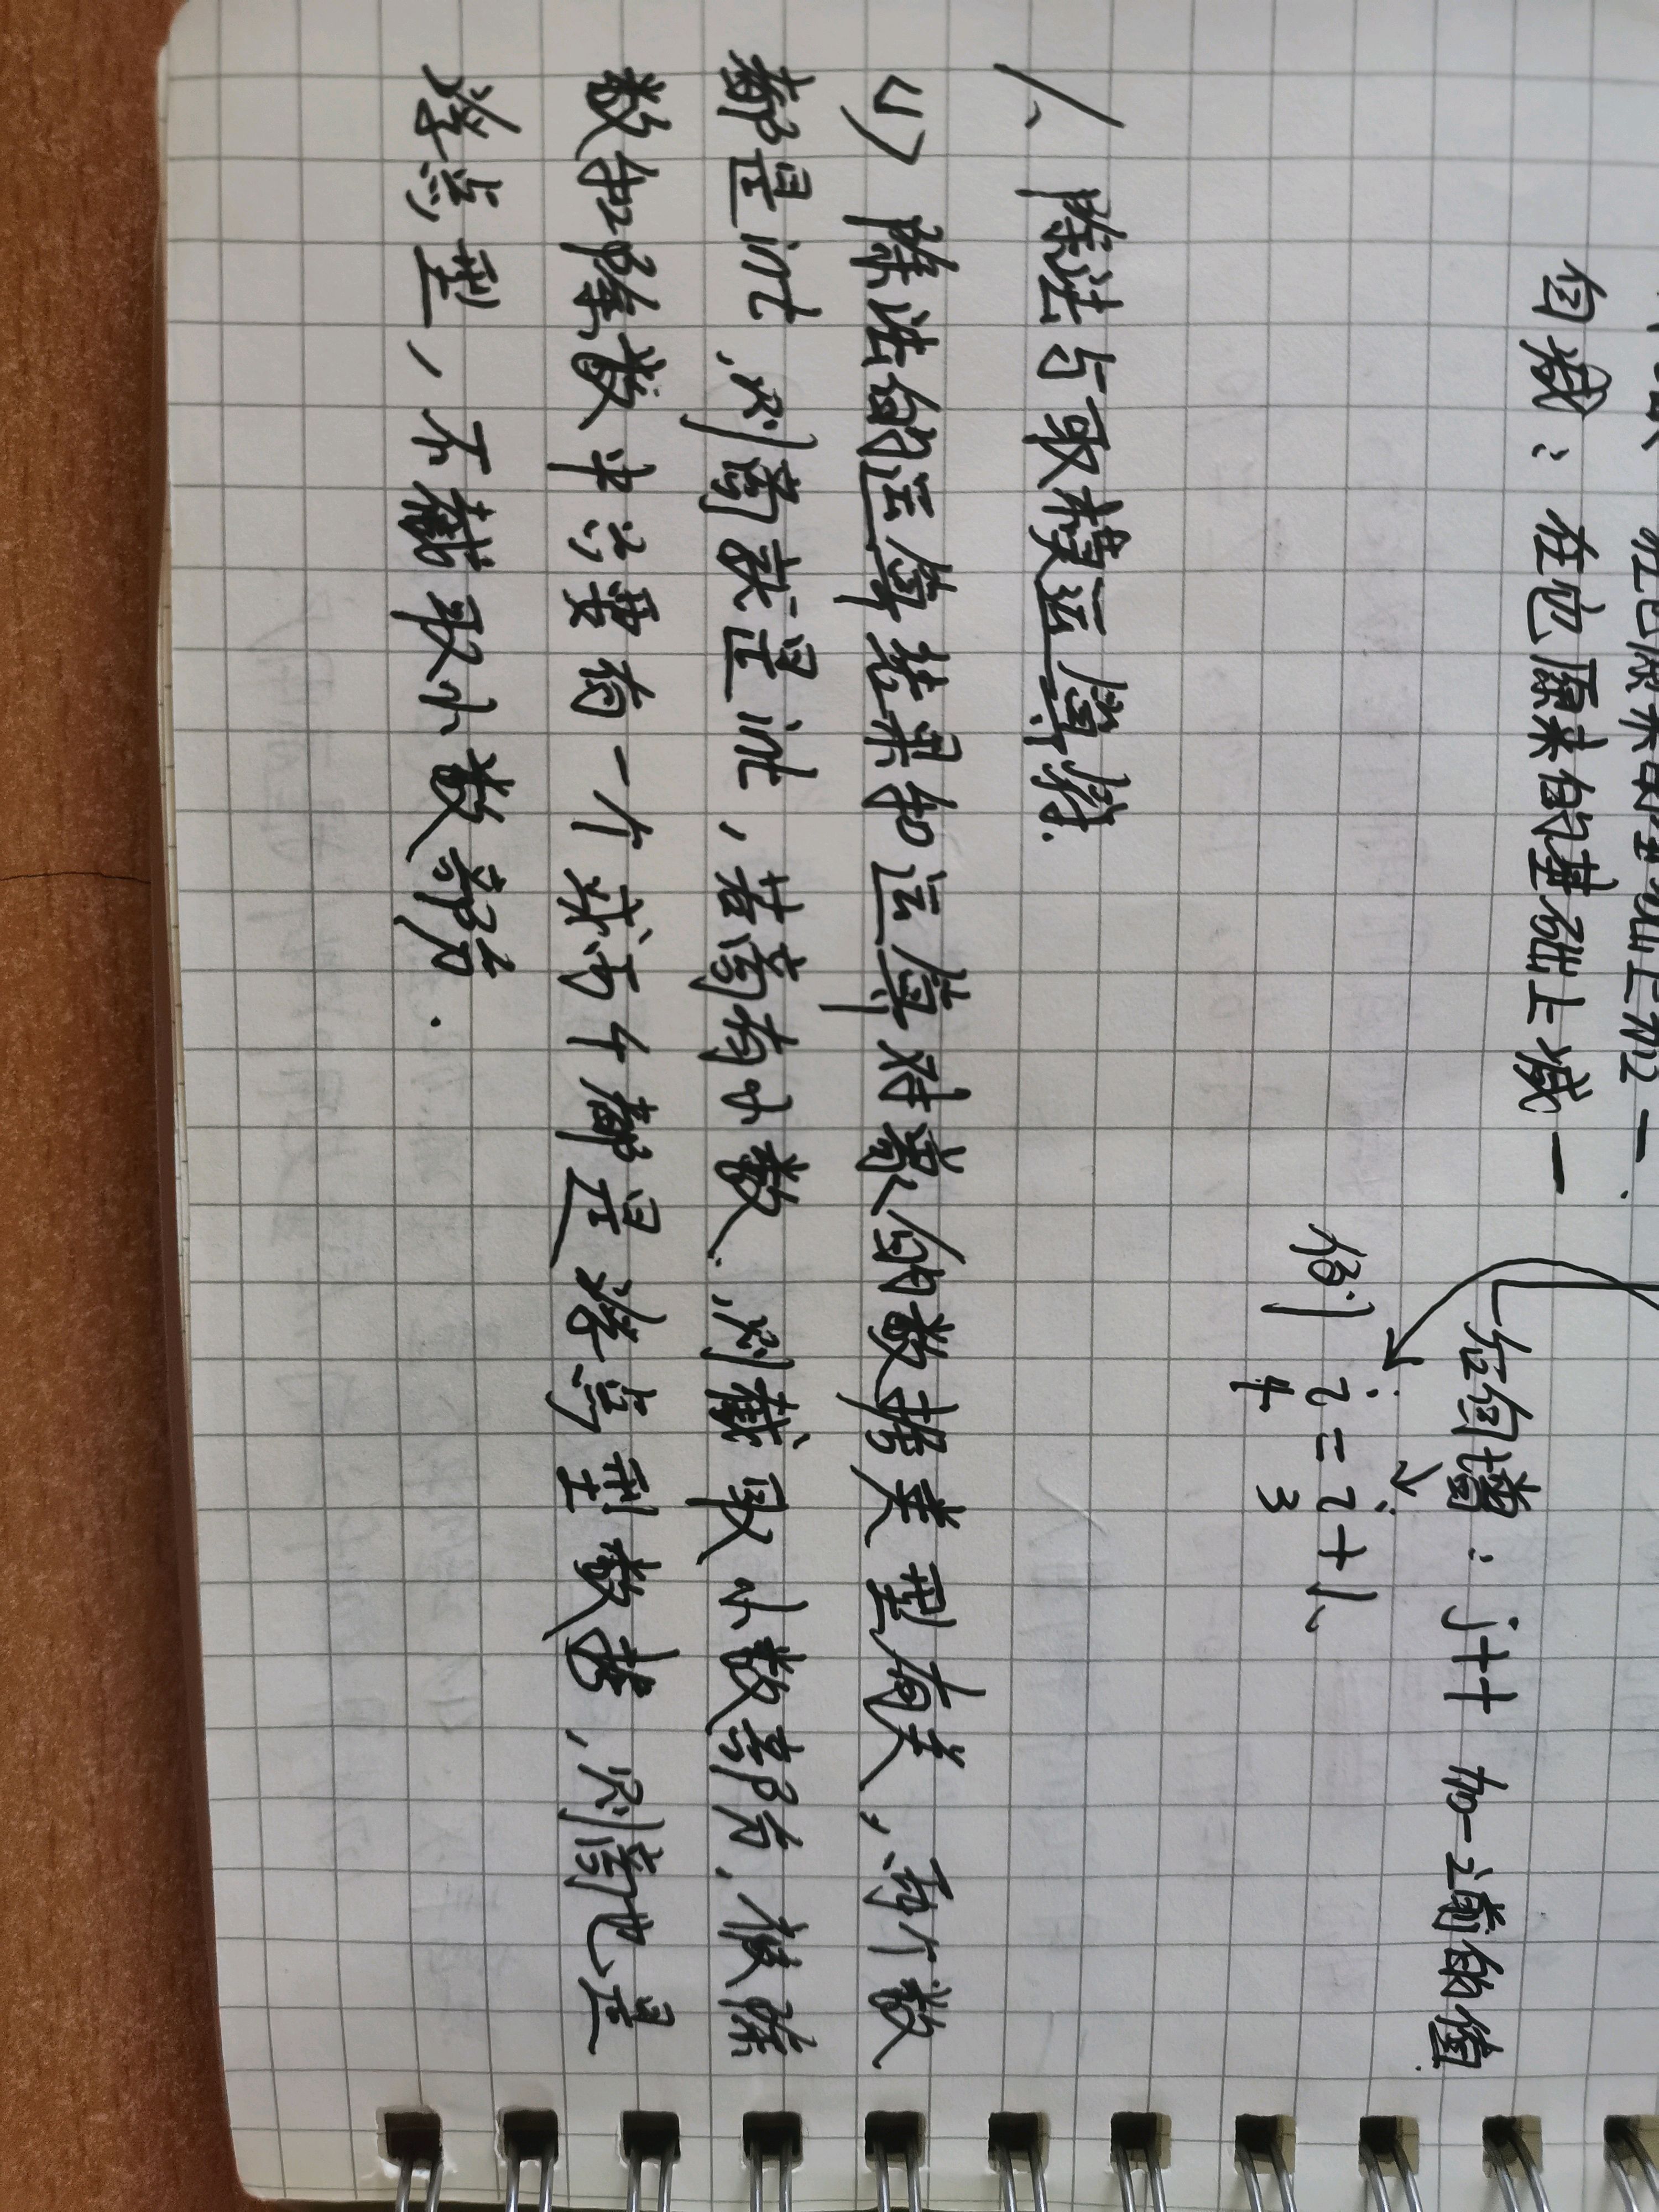 在它原来的基础上加一.
自减：在它原来的基础上减一
任何增：j++ 加一之前的值.
例 i = i + 1、
4 3
1、除法与取模运算符.
(1) 除法的运算结果和运算对象的数据类型有关，两个数
都是int，则商就是int，若商有小数，则截取小数部分，被除
数和除数中只要有一个或两个都是浮点型数据，则商也是
浮点型，不截取小数部分.